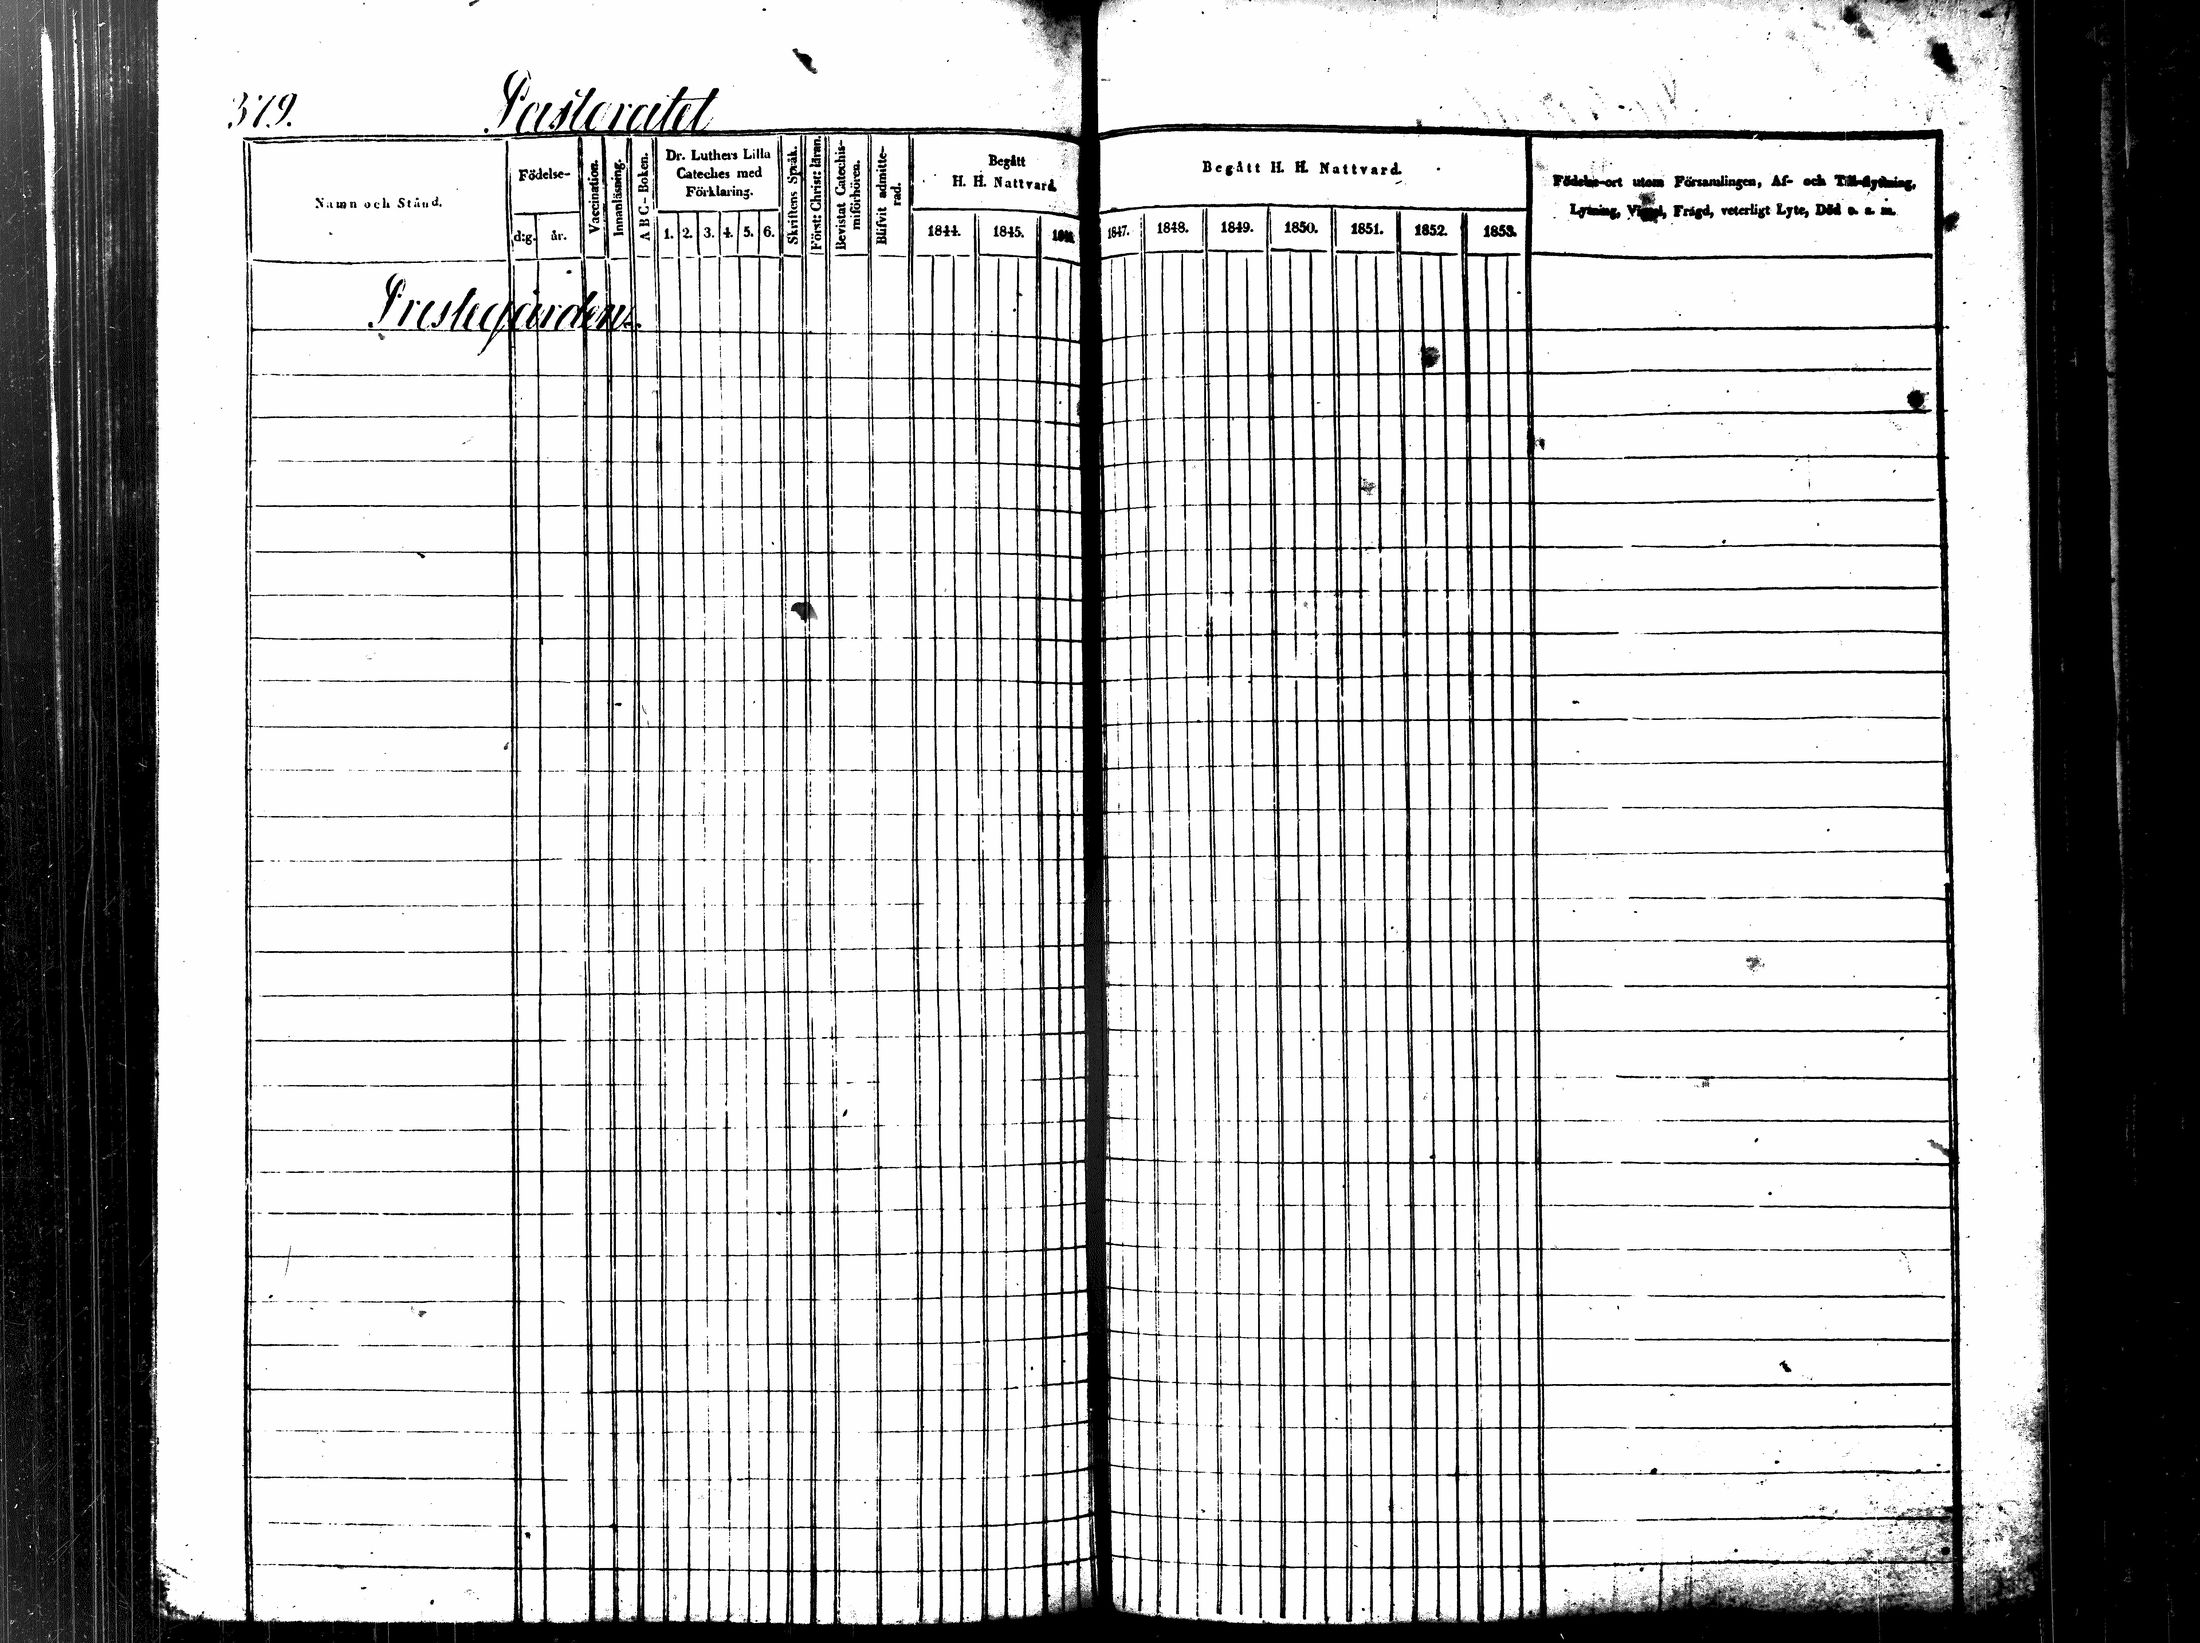 379.
Pastoratet
Namn och Stånd.
Födelse-
d:g. år.
Vaccination.
Innanläsning.
A B C.- Boken.
Dr. Luthers Lilla
Cateches med
Förklaring.
1. 2. 3. 4. 5. 6.
Skriftens Språk.
Först: Christ: läran.
Bevistat Catechis-
miförhören.
Blifvit admitte-
rad.
Begått
H. H. Nattvard.
1844. 1845. 1846.
Begått H. H. Nattvard.
1847. 1848. 1849. 1850. 1851. 1852. 1853.
Födelse-ort utom Församlingen, Af- och Till-flyttning,
Lysning, Vigsel, Frägd, veterligt Lyte, Död o. s. m.
Prestegården.